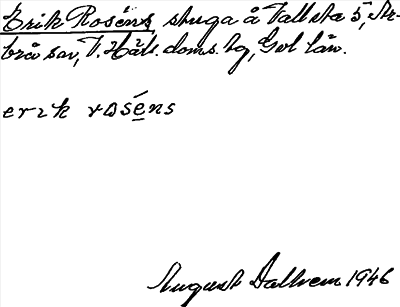 Erik Roséns stuga å Vallsta 5, Ar-
brå sn, V. Häls. doms. hg, Gvl län.
erik roséns
August Dallvem 1946